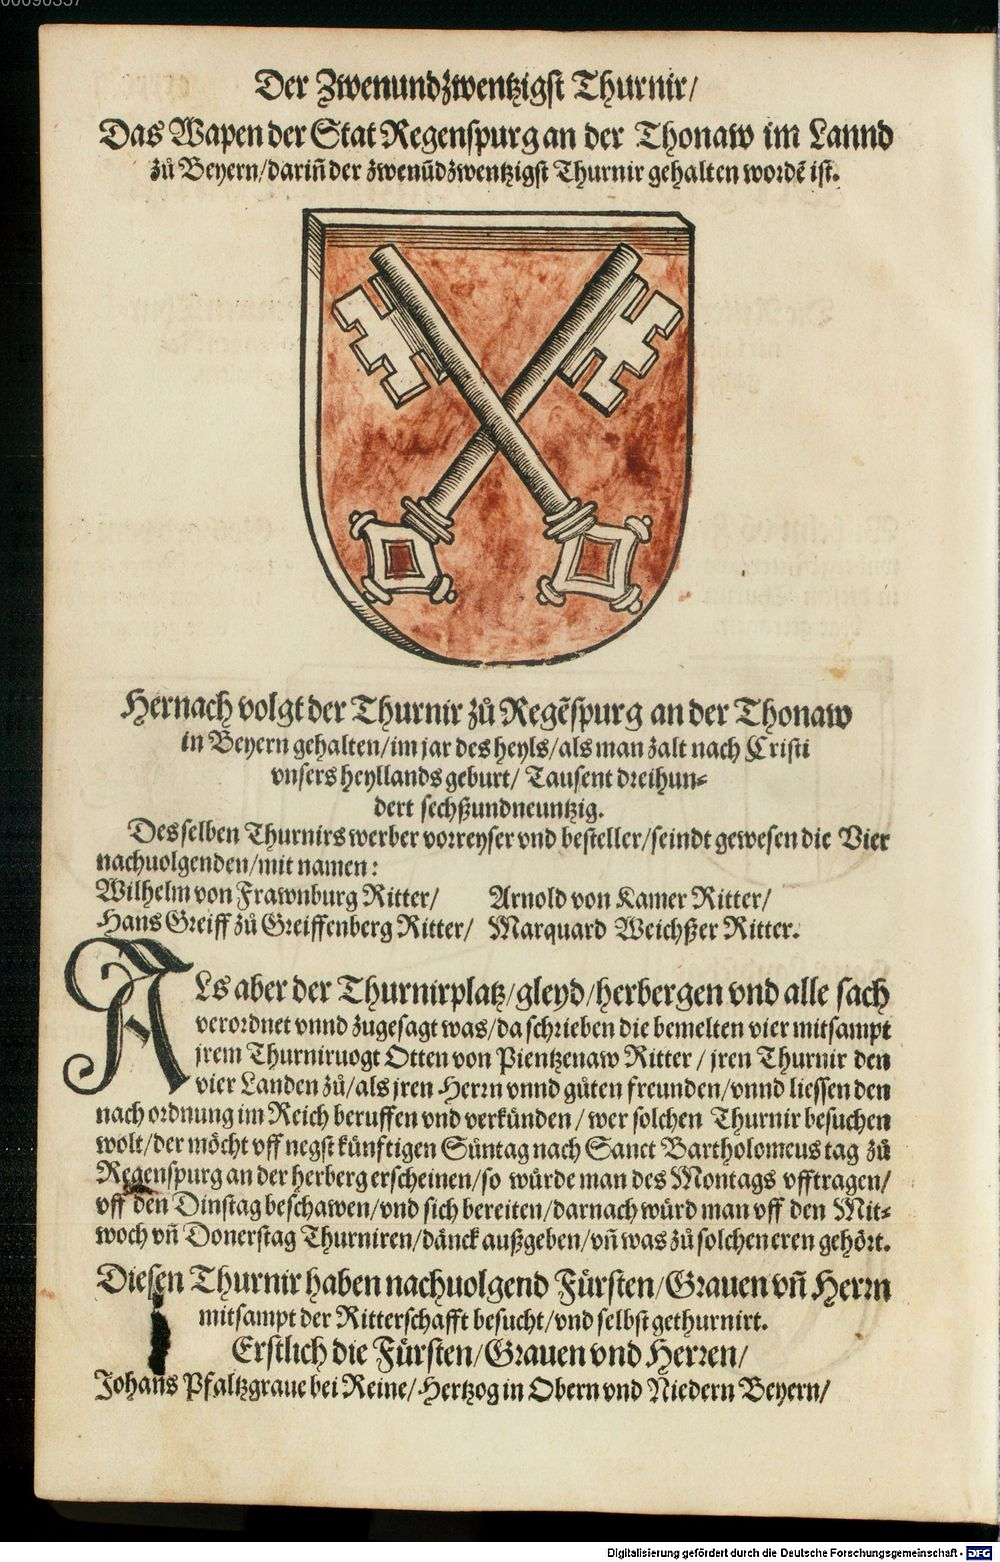 00090357
Der Zwenundzwentzigst Thurnir/
Das Wapen der Stat Regenspurg an der Thonaw im Lannd
zů Beyern/darin̄ der zwenūdzwentzigst Thurnir gehalten wordẽ ist.
Hernach volgt der Thurnir zů Regẽspurg an der Thonaw
in Beyern gehalten/im jar des heyls/als man zalt nach Cristi
vnsers heyllands geburt/ Tausent dreihun⸗
dert sechßundneuntzig.
Des selben Thurnirs werber vorreyser vnd besteller/seindt gewesen die Vier
nachuolgenden/mit namen:
Wilhelm von Frawnburg Ritter/ Arnold von Kamer Ritter/
Hans Greiff zů Greiffenberg Ritter/ Marquard Weichßer Ritter.
ALs aber der Thurnirplatz/gleyd/herbergen vnd alle sach
verordnet vnnd zugesagt was/da schrieben die bemelten vier mitsampt
jrem Thurniruogt Otten von Pientzenaw Ritter / jren Thurnir den
vier Landen zů/als jren Herrn vnnd gůten freunden/vnnd liessen den
nach ordnung im Reich beruffen vnd verkünden / wer solchen Thurnir besuchen
wolt/der möcht vff negst künftigen Sůntag nach Sanct Bartholomeus tag zů
Regenspurg an der herberg erscheinen/so würde man des Montags vfftragen/
vff den Dinstag beschawen/vnd sich bereiten/darnach würd man vff den Mit⸗
woch vn̄ Donerstag Thurniren/dänck außgeben/vn̄ was zů solchen eren gehört.
Diesen Thurnir haben nachuolgend Fürsten/Grauen vn̄ Herrn
mitsampt der Ritterschafft besucht/vnd selbst gethurnirt.
Erstlich die Fürsten/Grauen vnd Herren/
Johans Pfaltzgraue bei Reine/Hertzog in Obern vnd Niedern Beyern/
Digitalisierung gefördert durch die Deutsche Forschungsgemeinschaft - DFG